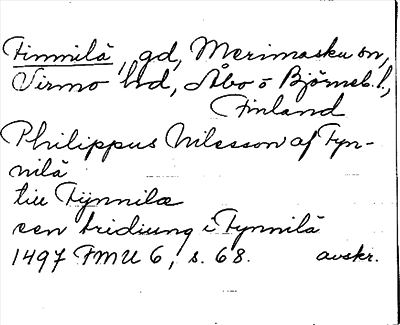 Finnilä, gd, Merimasku sn,
Virmo hd, Åbo o Björneb. l.,
Finland
Philippus Nilsson af Fyn-
nilä
till Fÿnnilæ
een tridiung i Fynnilä
1497 FMU 6, s. 68. avskr.